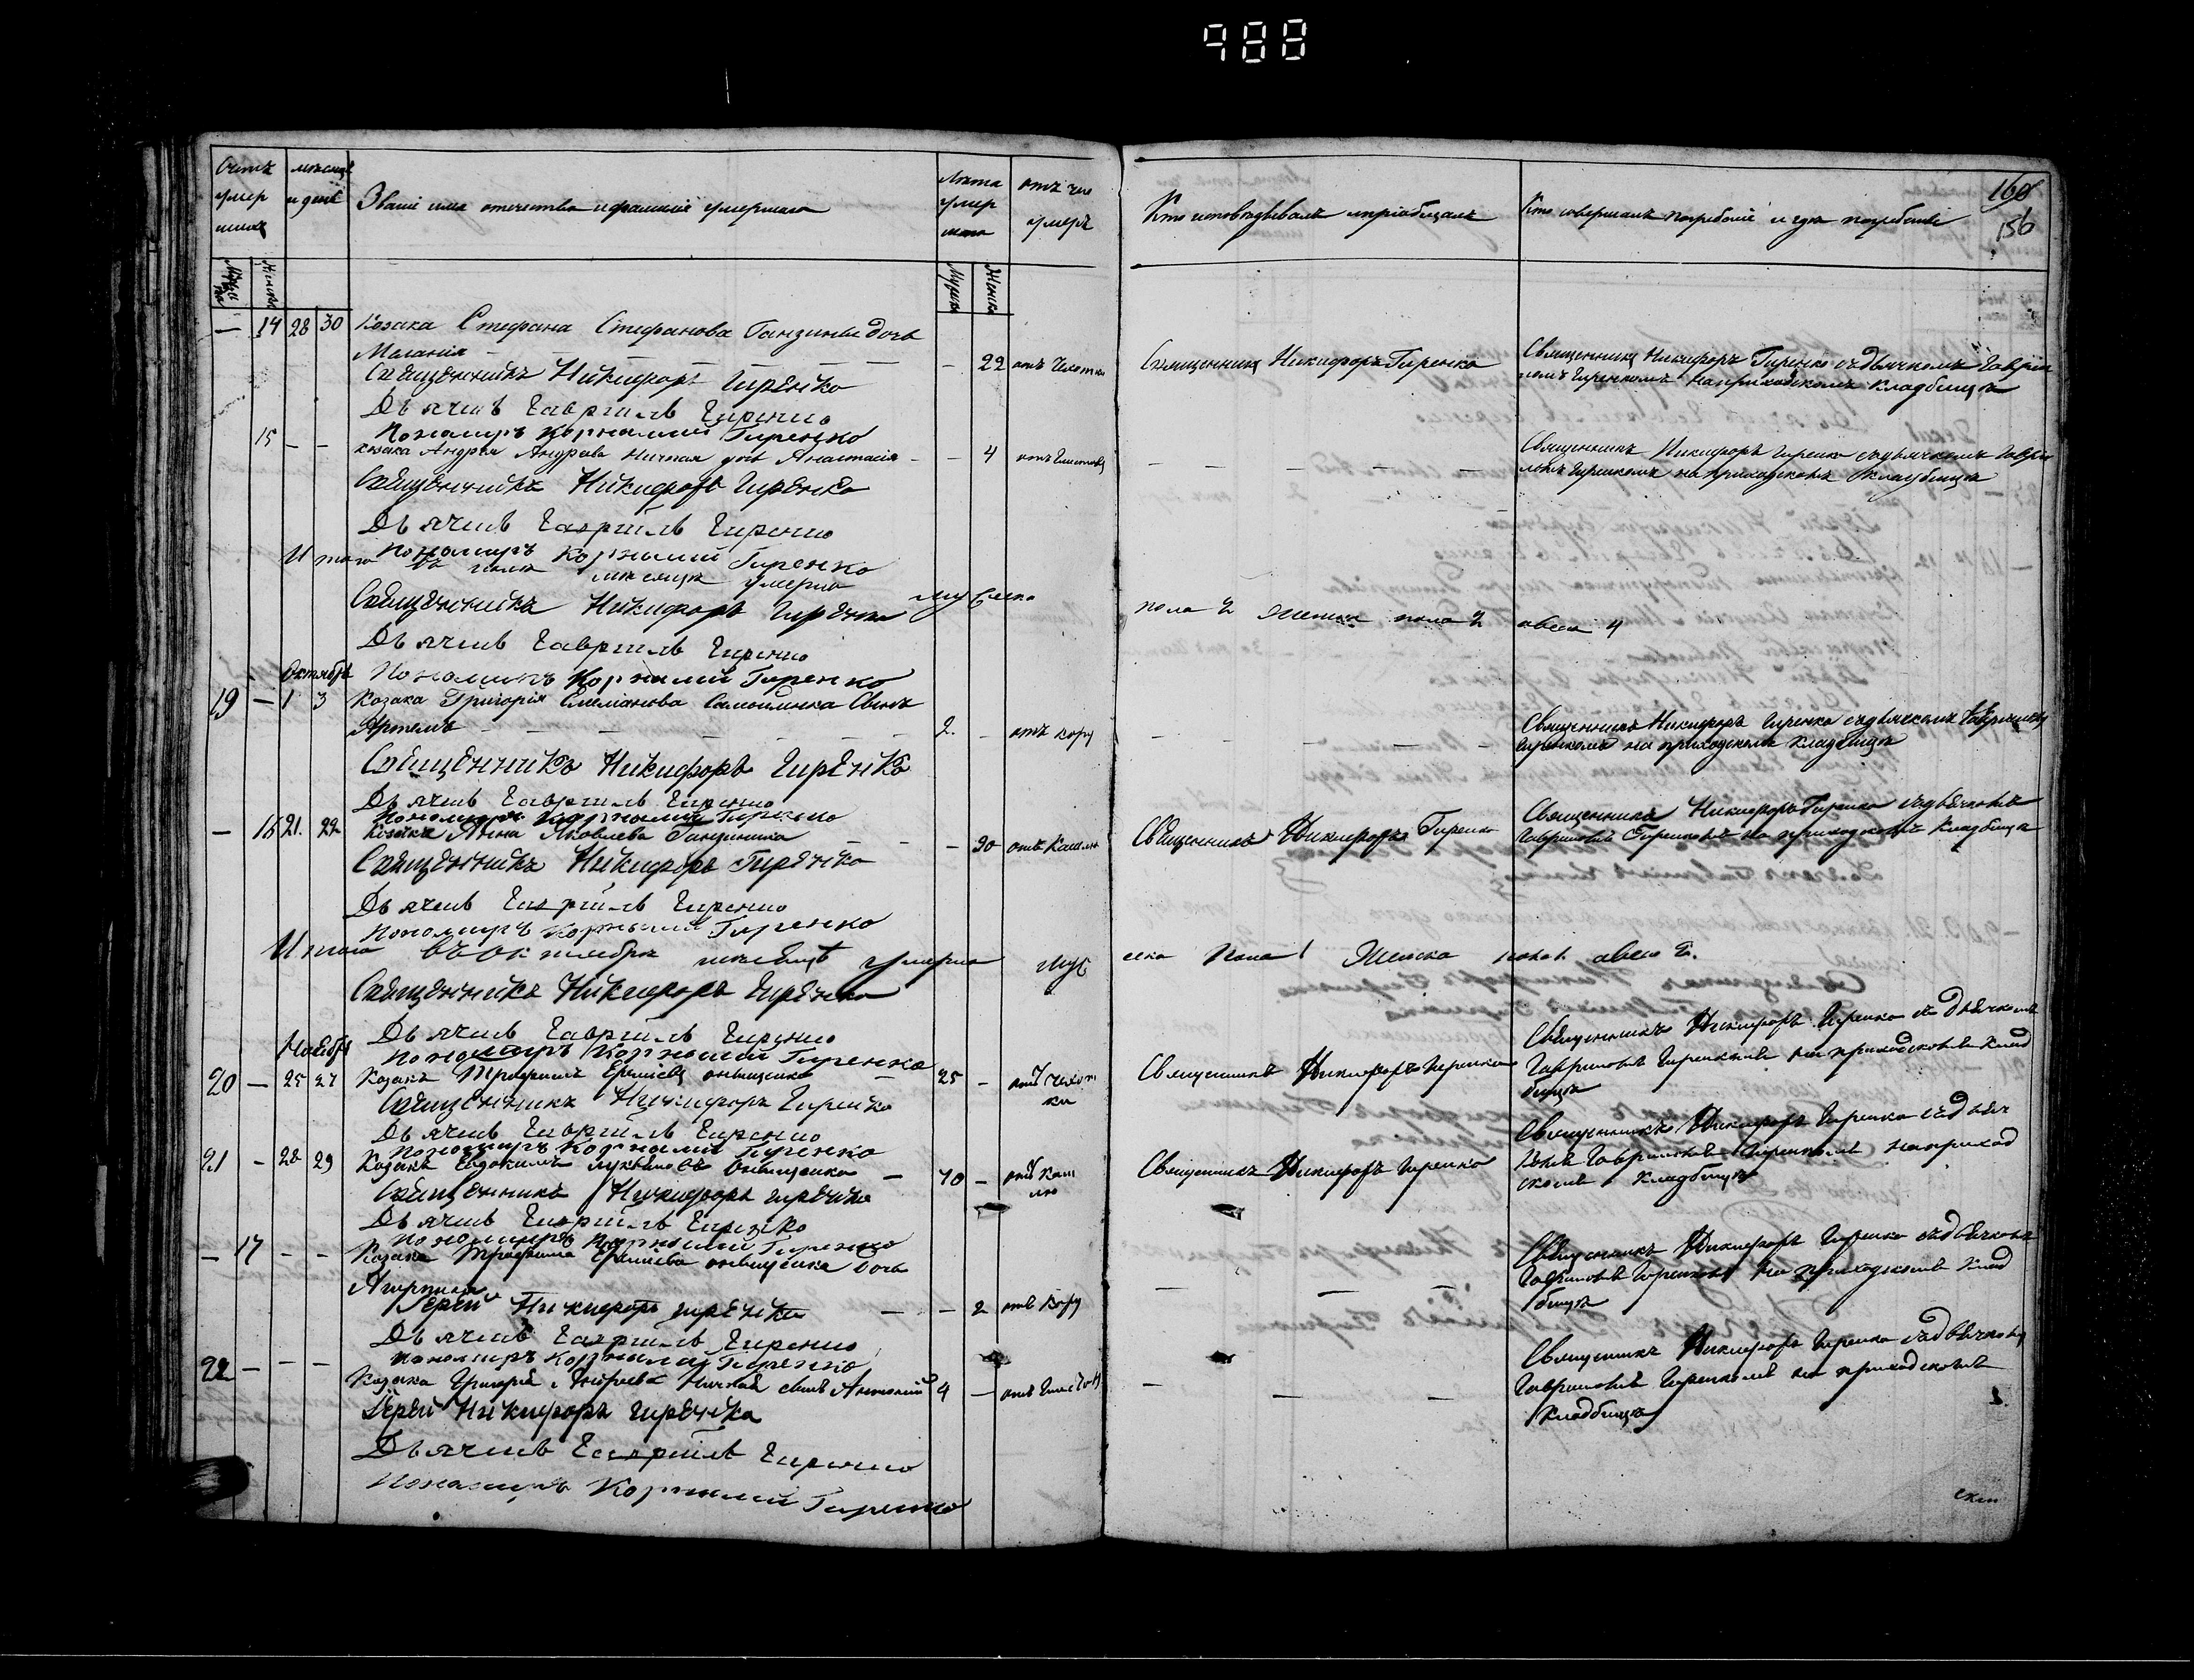 988
Счетъ умер шихъ
мѣсяцъ и день
Званіе имя отечество и фамилія умершаго
Лѣта умер шаго
отъ чего умеръ
Кто исповѣдывалъ и пріобщалъ
Кто совершалъ погребеніе и гдѣ погребенъ
160
156
Мужеска
Женска
Мужеска
Женска
— 14 28 30 Козака Стефана Стефанова Ганзины дочь
Маланія — 22 отъ чахотки
Священникъ Никифоръ Гиренко
Священникъ Никифоръ Гиренко съ дьячкомъ Гаврiи
ломъ Гиренкомъ на приходскомъ кладбищѣ
Священникъ Никифоръ Гиренко
Дьячекъ Гавріилъ Гиренко
Пономаръ Корнилій Гиренко
15 — — козака Андрея Андреева дочь Анастасія — 4
Священникъ Никифоръ Гиренко съ дьячкомъ Гаврі
ломъ Гиренкомъ на приходскомъ кладбищѣ
Священникъ Никифоръ Гиренко
Дьячекъ Гавріилъ Гиренко
Пономаръ Корнилій Гиренко
Итого въ мѣсяцѣ умерло мужеска пола 2 женска пола 2 обоего 4
Священникъ Никифоръ Гиренко
Дьячекъ Гавріилъ Гиренко
Пономаръ Корнилій Гиренко
Октябрь
19 — 1 3 Козака Григорія Емеліанова Самойленка сынъ
Артемъ 2. — отъ кору
Священникъ Никифоръ Гиренко съ дьячкомъ Гавріиломъ
Гиренкомъ на приходскомъ кладбищѣ
Священникъ Никифоръ Гиренко
Дьячекъ Гавріилъ Гиренко
Пономаръ Корнилій Гиренко
— 16 21. 22 Анна Яковлева — 30 отъ кашлю
Священникъ Никифоръ Гиренко
Священникъ Никифоръ Гиренко съ дьячкомъ
Гавріиломъ Гиренкомъ на приходскомъ кладбищѣ
Священникъ Никифоръ Гиренко
Дьячекъ Гавріилъ Гиренко
Пономаръ Корнилій Гиренко
Итого въ октябрѣ мѣсяцѣ умерло муже ска пола 1 женска обоего 2.
Священникъ Никифоръ Гиренко
Дьячекъ Гавріилъ Гиренко
Пономаръ Корнилій Гиренко
Ноябрь
20 — 25 27 Козакъ Трофимъ Онищенко 25 — отъ чахот ки
Священникъ Никифоръ Гиренко
Священникъ Никифоръ Гиренко съ дьячкомъ
Гавріиломъ Гиренкомъ на приходскомъ клад
бищѣ
Священникъ Никифоръ Гиренко
Дьячекъ Гавріилъ Гиренко
Пономаръ Корнилій Гиренко
21 — 28 29 Козакъ Евдокимъ Онищенко — 40 — отъ каш лю
Священникъ Никифоръ Гиренко
Священникъ Никифоръ Гиренко съ дьяч
комъ Гавріиломъ Гиренкомъ на приход
скомъ кладбищѣ
Священникъ Никифоръ Гиренко
Дьячекъ Гавріилъ Гиренко
Пономаръ Корнилій Гиренко
— 17 — — Козака Трофима Онищенка дочь
Агрипина — 2 отъ кору
Священникъ Никифоръ Гиренко съ дьячкомъ
Гавріиломъ Гиренкомъ на приходскомъ клад
бищѣ
Іерей Никифоръ Гиренко
Дьячекъ Гавріилъ Гиренко
Пономаръ Корнилій Гиренко
22 — — — Козака Григорія Андреева сынъ Антоній 4 —
Священникъ Никифоръ Гиренко съ дьячкомъ
Гавріиломъ Гиренкомъ на приходскомъ
кладбищѣ
Іерей Никифоръ Гиренко
Дьячекъ Гавріилъ Гиренко
Пономаръ Корнилій Гиренко